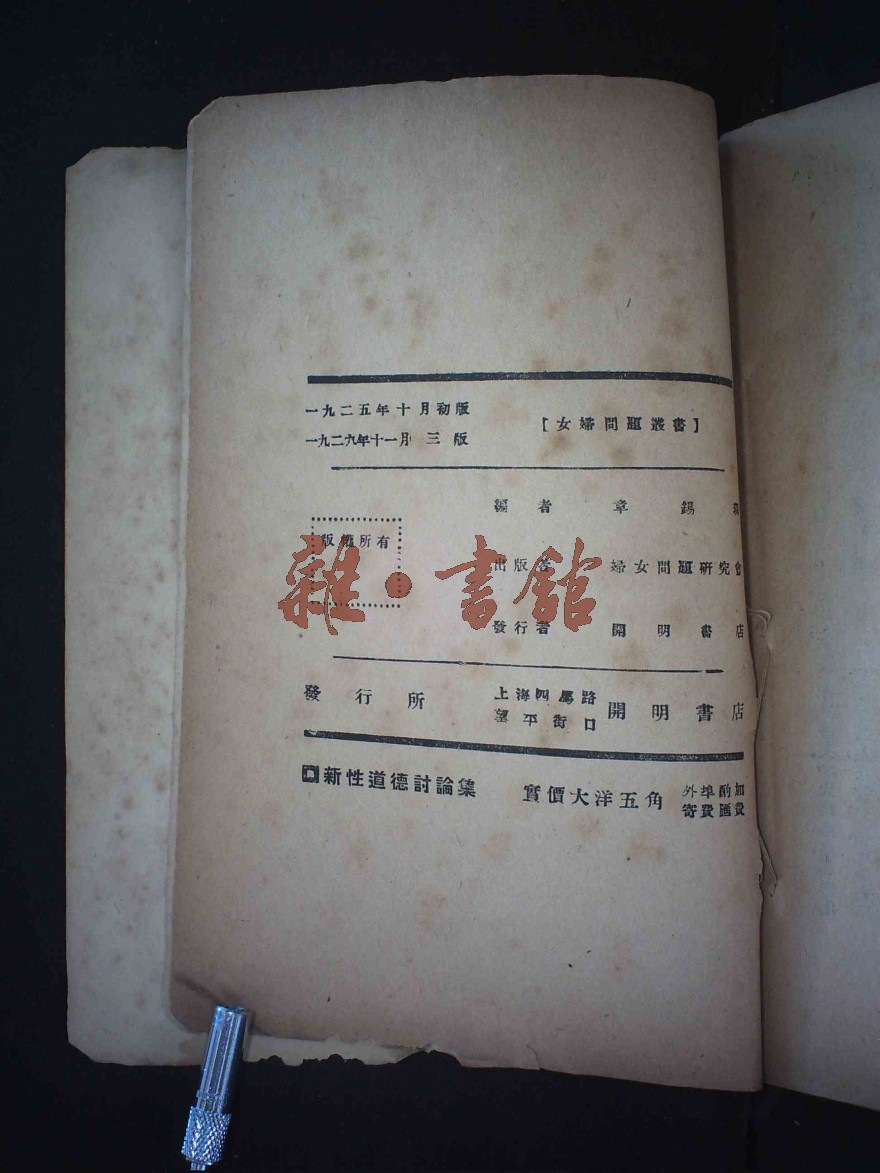 一九二五年十月初版
一九二九年十一月 三版
【女婦問題叢書】
編者 章錫
版權所有
出版者 婦女問題研究會
發行者 開明書店
發行所
上海四馬路
望平街口
開明書店
新性道德討論集
實價大洋五角
外埠酌加
寄費匯費
雜·書館